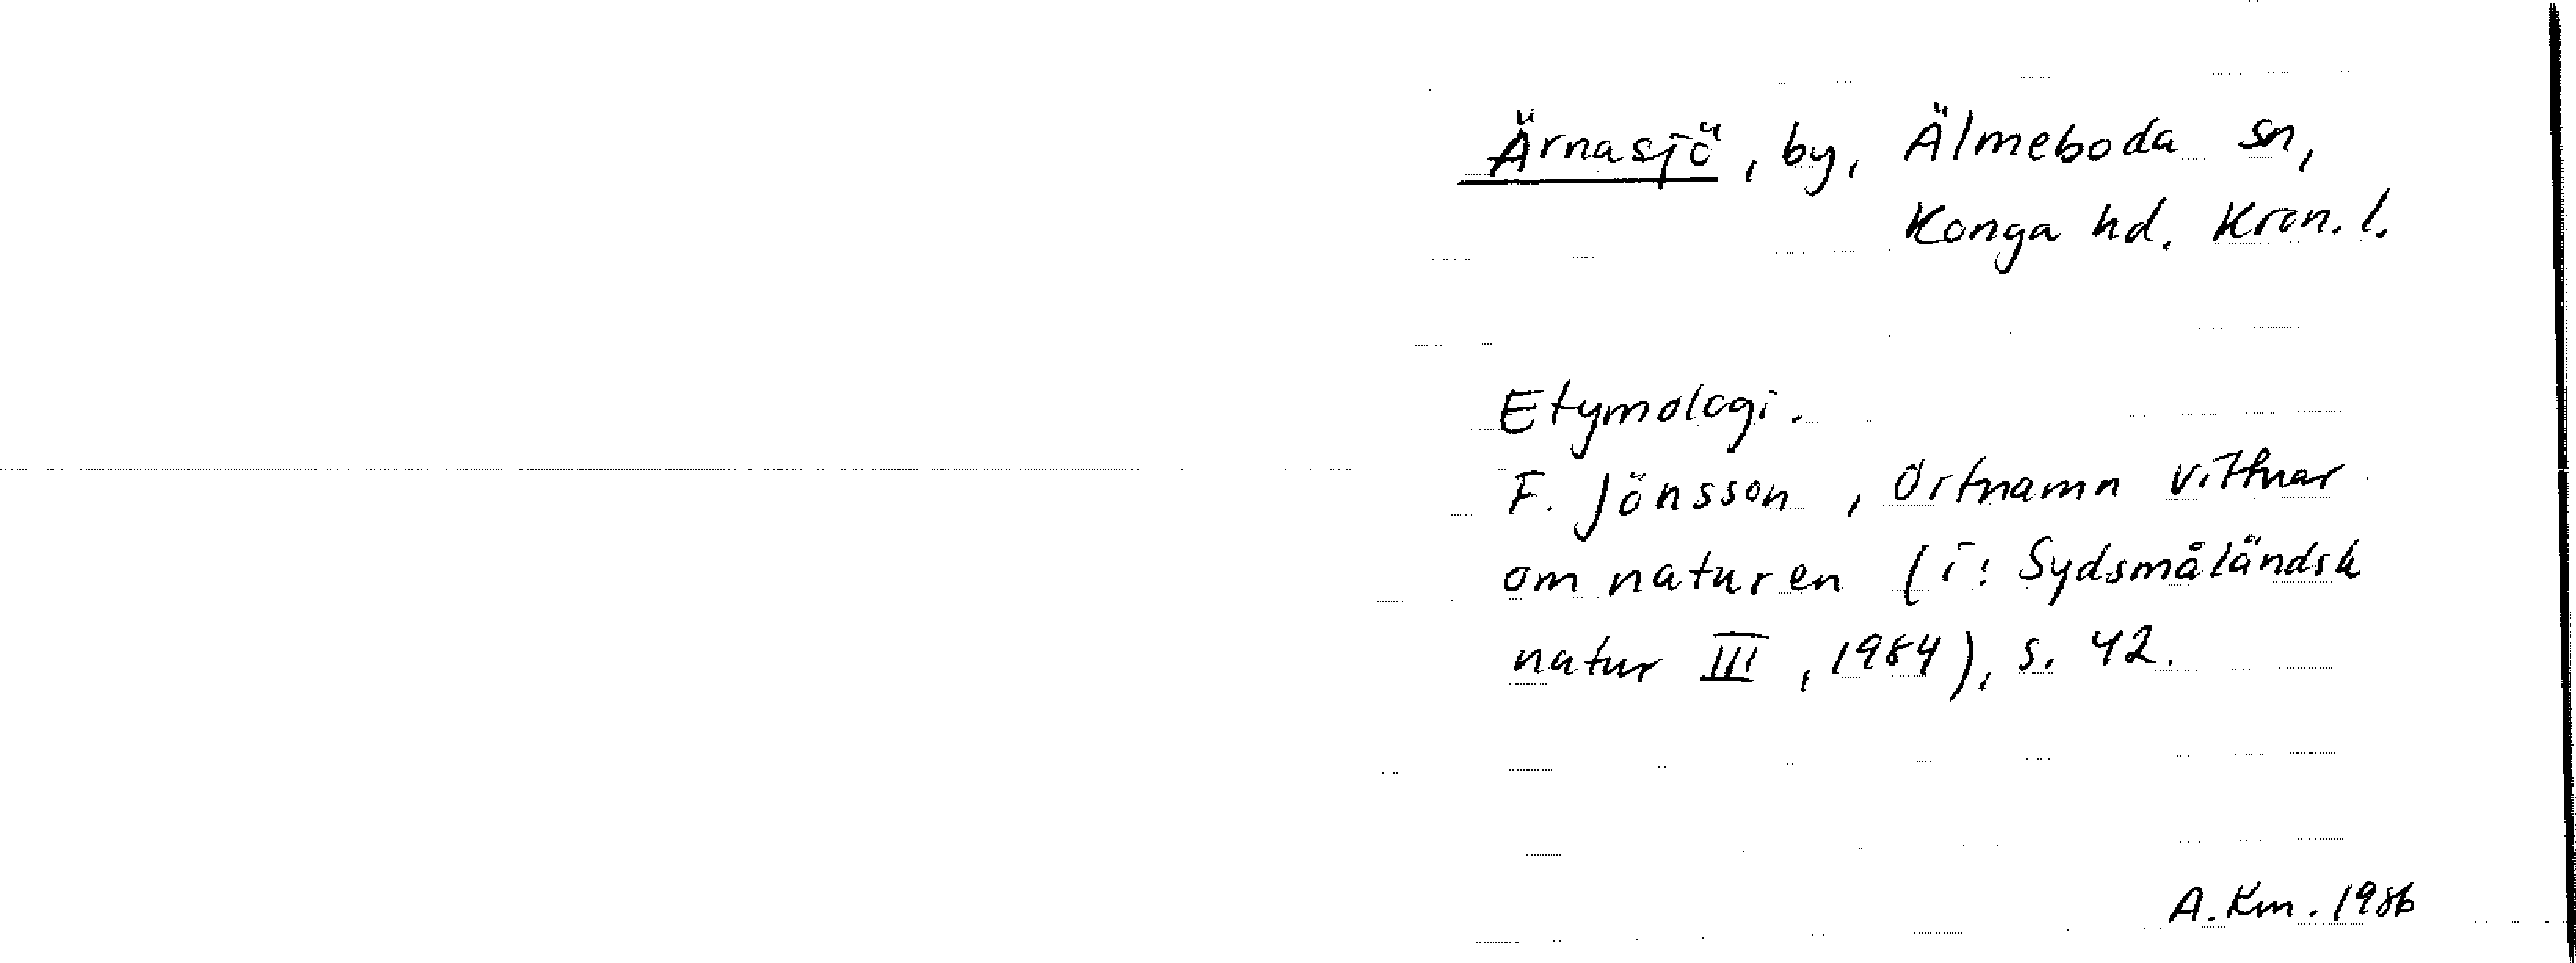 Ärnasjö, by, Älmeboda sn,
Konga hd. Kron. l.
Etymologi.
F. Jönsson, Ortnamn vittnar
om naturen (i: Sydsmåländsk
natur III, 1984), s. 42.
A. Km. 1986